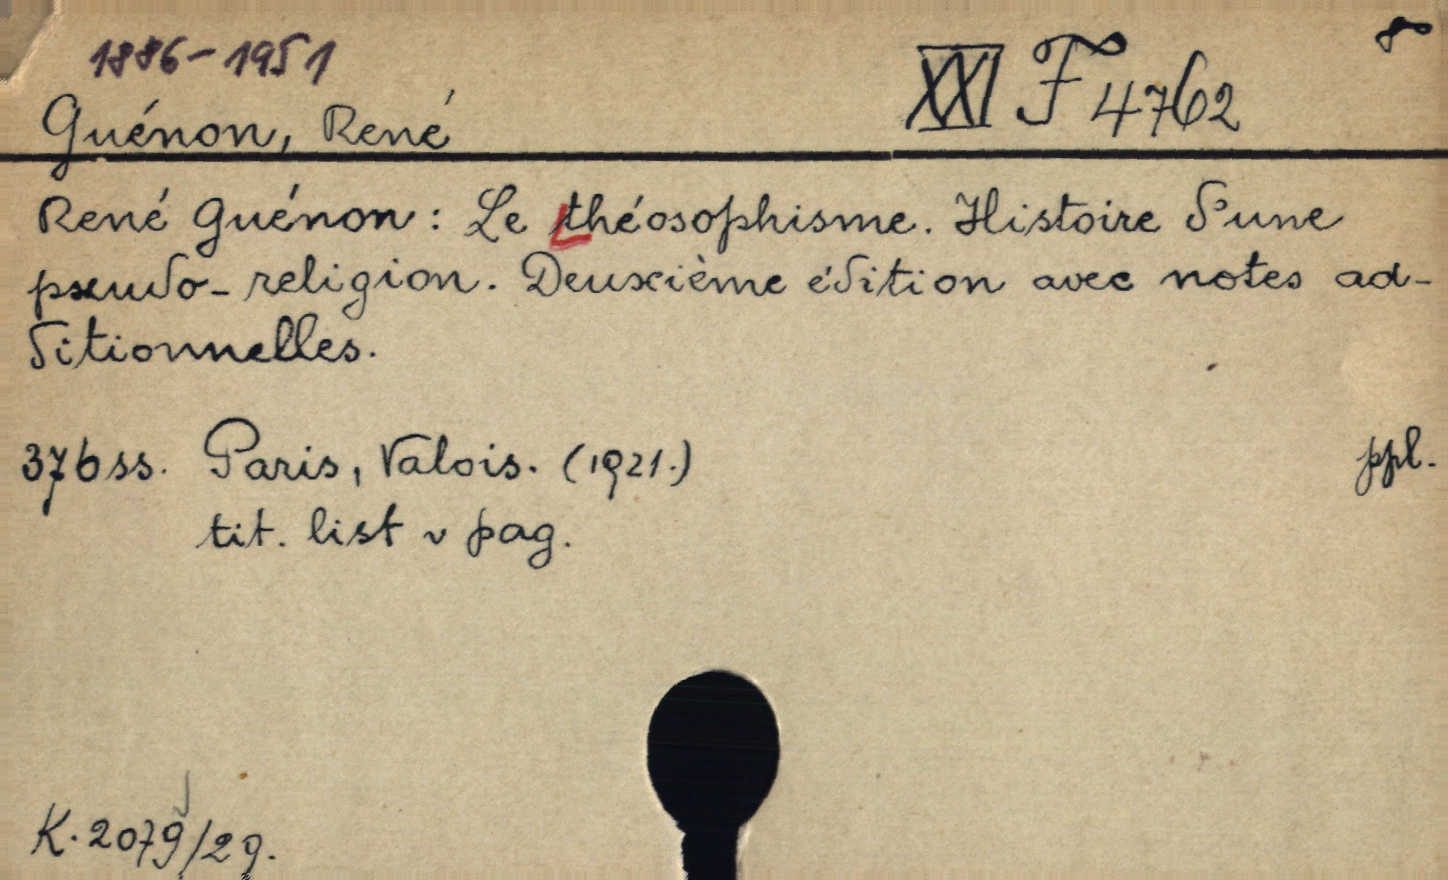 1886-1951
8°
Guénon, René XXI F 4762
René Guénon: Le théosophisme. Histoire d'une
pseudo-religion. Deuxième édition avec notes ad-
ditionnelles.
376 ss. Paris, Valois. (1921.) ppl.
tit. list v pag.
K. 2079/29.